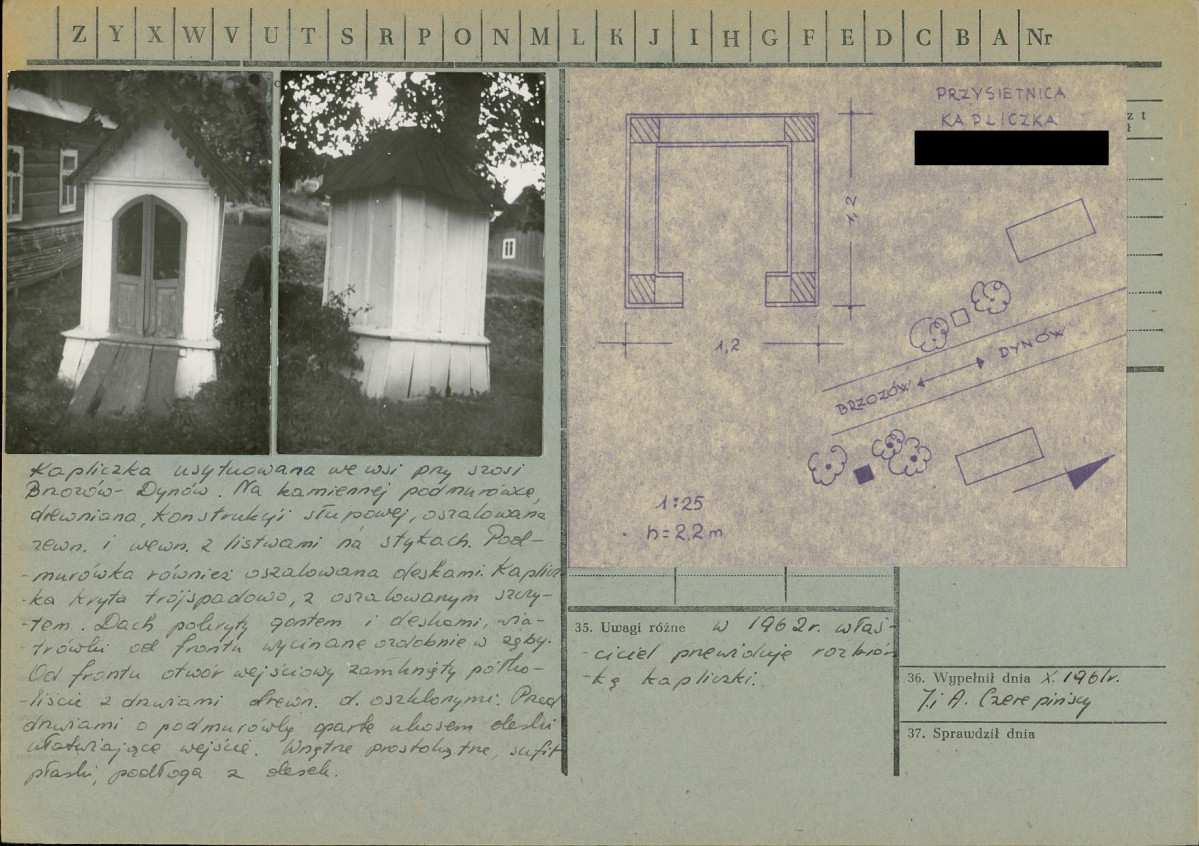 Z Y X W V U T S R P O N M L K J I H G F E D C B A Nr
PRZYSIETNICA
KAPLICZKA
z t
1,2
1,2
BRZOZÓW DYNÓW
1:25
h = 2,2 m.
Kapliczka usytuowana we wsi przy szosi
Brzozów - Dynów. Na kamiennej podmurówce,
drewniana, konstrukcji słupowej, oszalowana
zewn. i wewn. z listwami na stykach. Pod-
-murówka również oszalowana deskami. Kaplicz-
-ka kryta trójspadowo, z oszalowanym szczy-
-tem. Dach pokryty gontem i deskami, wia-
-trówki od frontu wycinane ozdobnie w zęby.
Od frontu otwór wejściowy zamknięty półko-
-liście z drzwiami drewn. d. oszklonymi. Przed
drzwiami o podmurówkę oparte ukosem deski
ułatwiające wejście. Wnętrze prostokątne, sufit
płaski, podłoga z desek.
35. Uwagi różne w 1962 r. właś-
-ciciel przewiduje rozbiór-
-kę kapliczki.
36. Wypełnił dnia X. 1961r.
J. i A. Czerepińscy
37. Sprawdził dnia